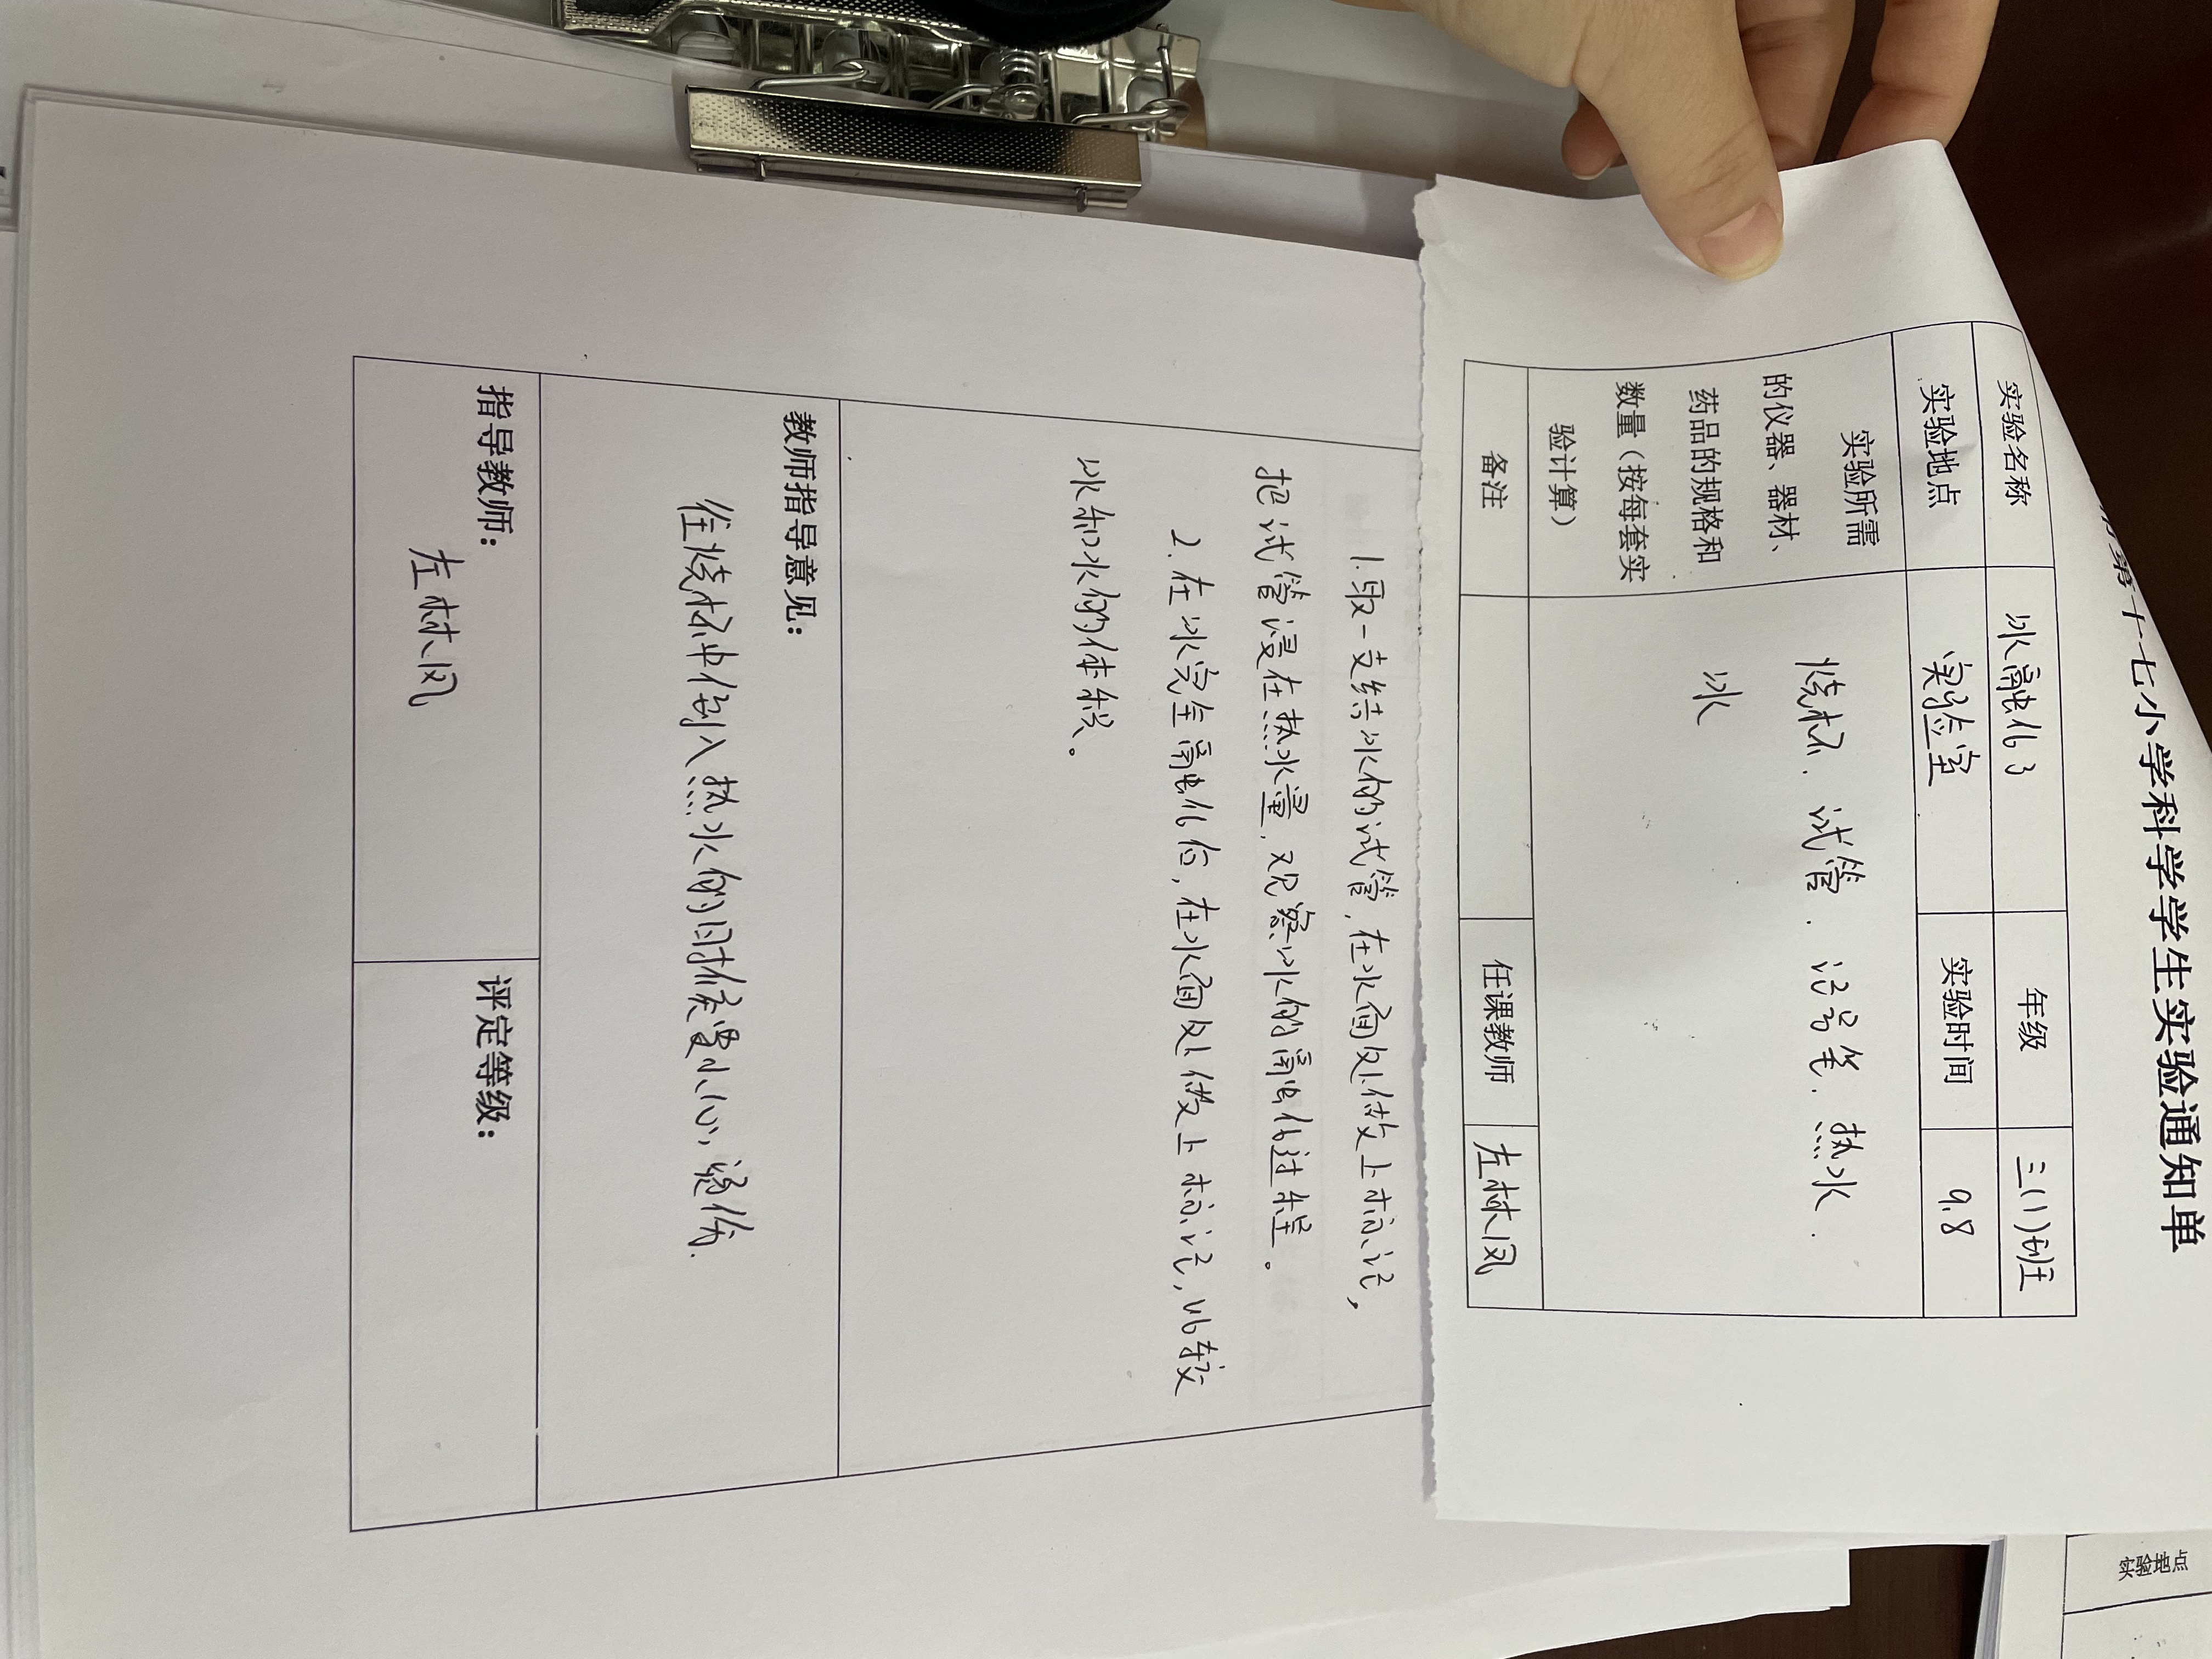 第十七小学科学学生实验通知单
实验名称 冰融化了 年级 三(1)班
实验地点 实验室 实验时间 9.8
实验所需
的仪器、器材、
药品的规格和
数量（按每套实
验计算）
烧杯、试管、记号笔、热水、
冰
备注 任课教师 左林凤
1.取一支结冰的试管，在冰面处做上标记，
把试管浸在热水里，观察冰的融化过程。
2.在冰完全融化后，在水面处做上标记，比较
冰和水的体积。
教师指导意见：
往烧杯中倒入热水的时候要小心烫伤.
指导教师： 评定等级：
左林凤
实验地点